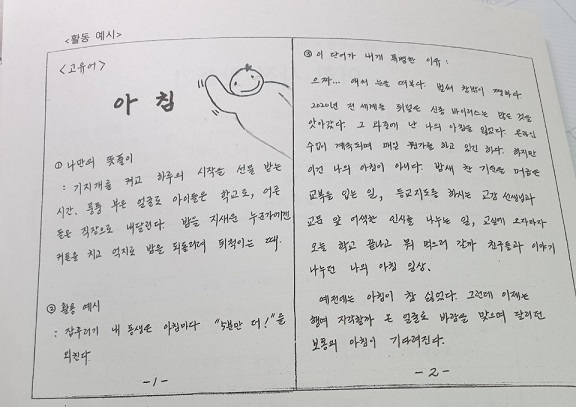 <활동 예시>
<고유어>
아 침
① 나만의 뜻풀이
: 기지개를 켜고 하루의 시작을 선물 받는
시간. 퉁퉁 부은 얼굴로 아이들은 학교로, 어른
들은 직장으로 내달린다. 밤을 지새운 누군가에겐
커튼을 치고 억지로 밤을 되돌리려 뒤척이는 때.
② 활용 예시
: 잠꾸러기 내 동생은 아침마다 "5분만 더!"을
외친다
-1-
③ 이 단어가 내게 특별한 이유 :
으짜... 애써 눈을 떠본다. 벌써 창밖이 쨍하다
2020년 전 세계를 뒤덮은 신종 바이러스는 많은 것을
앗아갔다. 그 와중에 난 나의 아침을 잃었다. 온라인
수업이 계속되며 매일 뭔가를 하고 있긴 하다. 하지만
이건 나의 아침이 아니다. 밤새 찬 기운을 머금은
교복을 입는 일, 등교지도를 하시는 교감 선생님과
교문 앞 어색한 인사를 나누는 일, 교실에 오자마자
오늘 학교 끝나고 뭐 먹으러 갈까 친구들과 이야기
나누던 나의 아침 일상.
예전에는 아침이 참 싫었다. 그런데 이제는
행여 지각할까 온 얼굴로 바람을 맞으며 달리던
보통의 아침이 기다려진다.
-2-